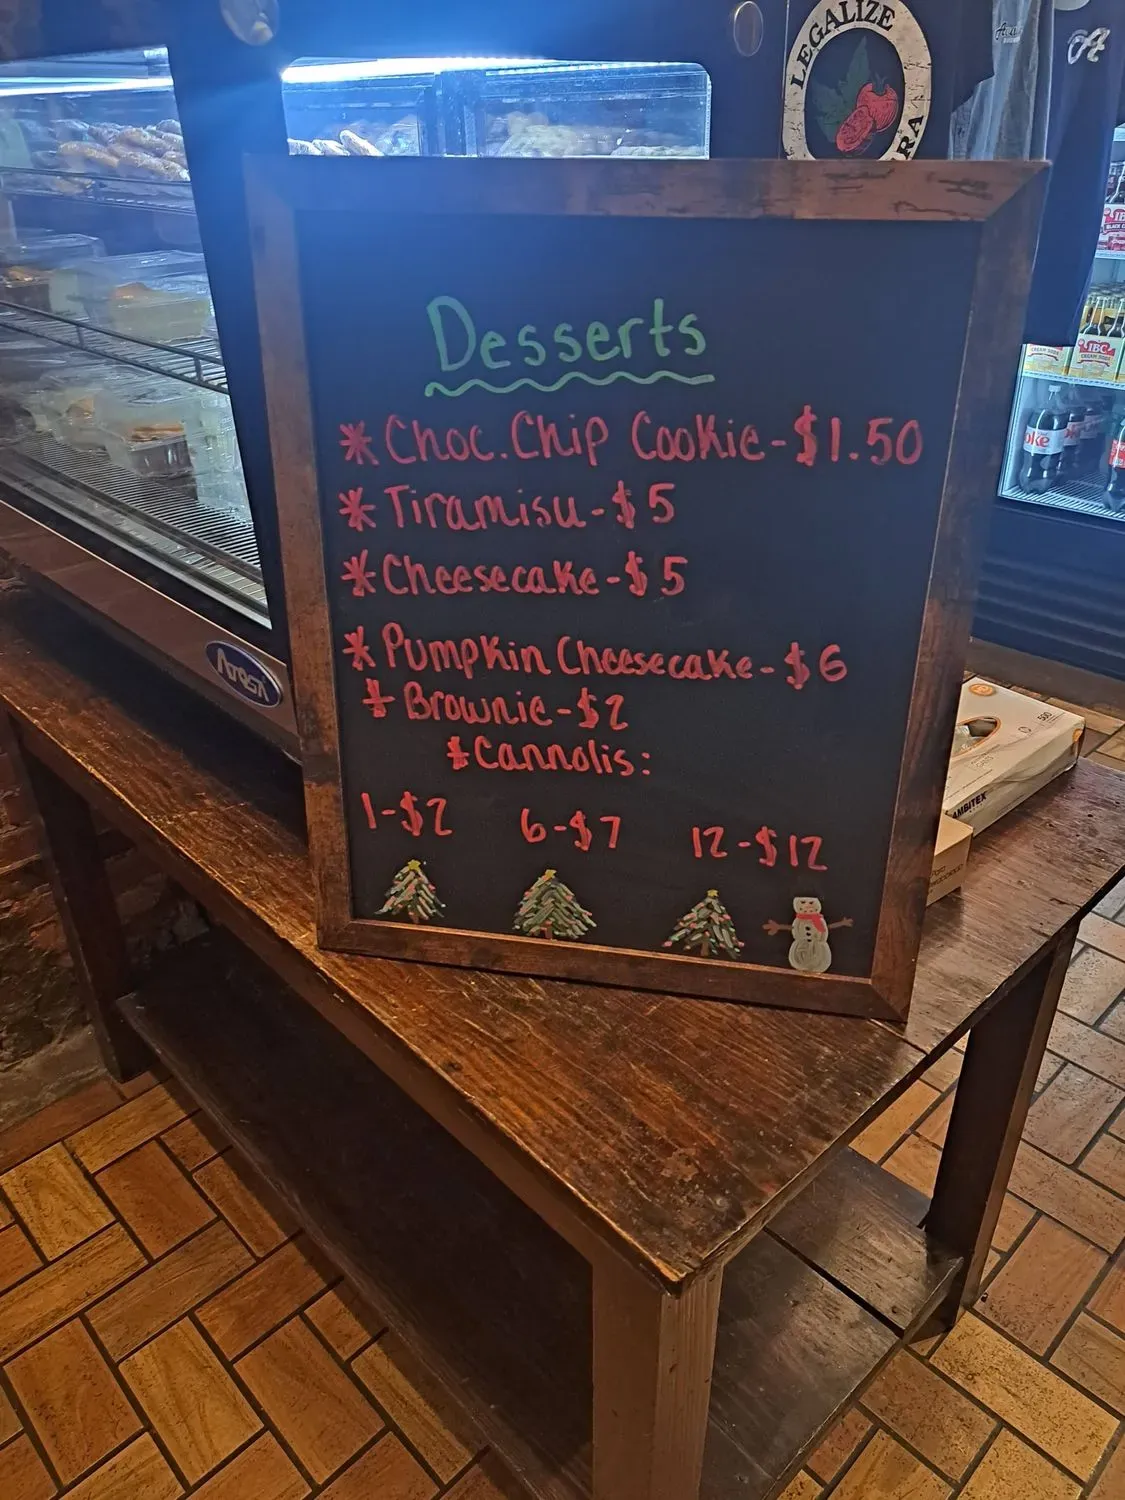 LEGALIZE
RA
A
Desserts
* Choc. Chip Cookie - $1.50
* Tiramisu - $5
* Cheesecake - $5
* Pumpkin Cheesecake - $6
* Brownie - $2
* Cannolis:
1 - $2 6 - $7 12 - $12
Arosa
IBC
CREAM SODA
oke
500
AMBITEX